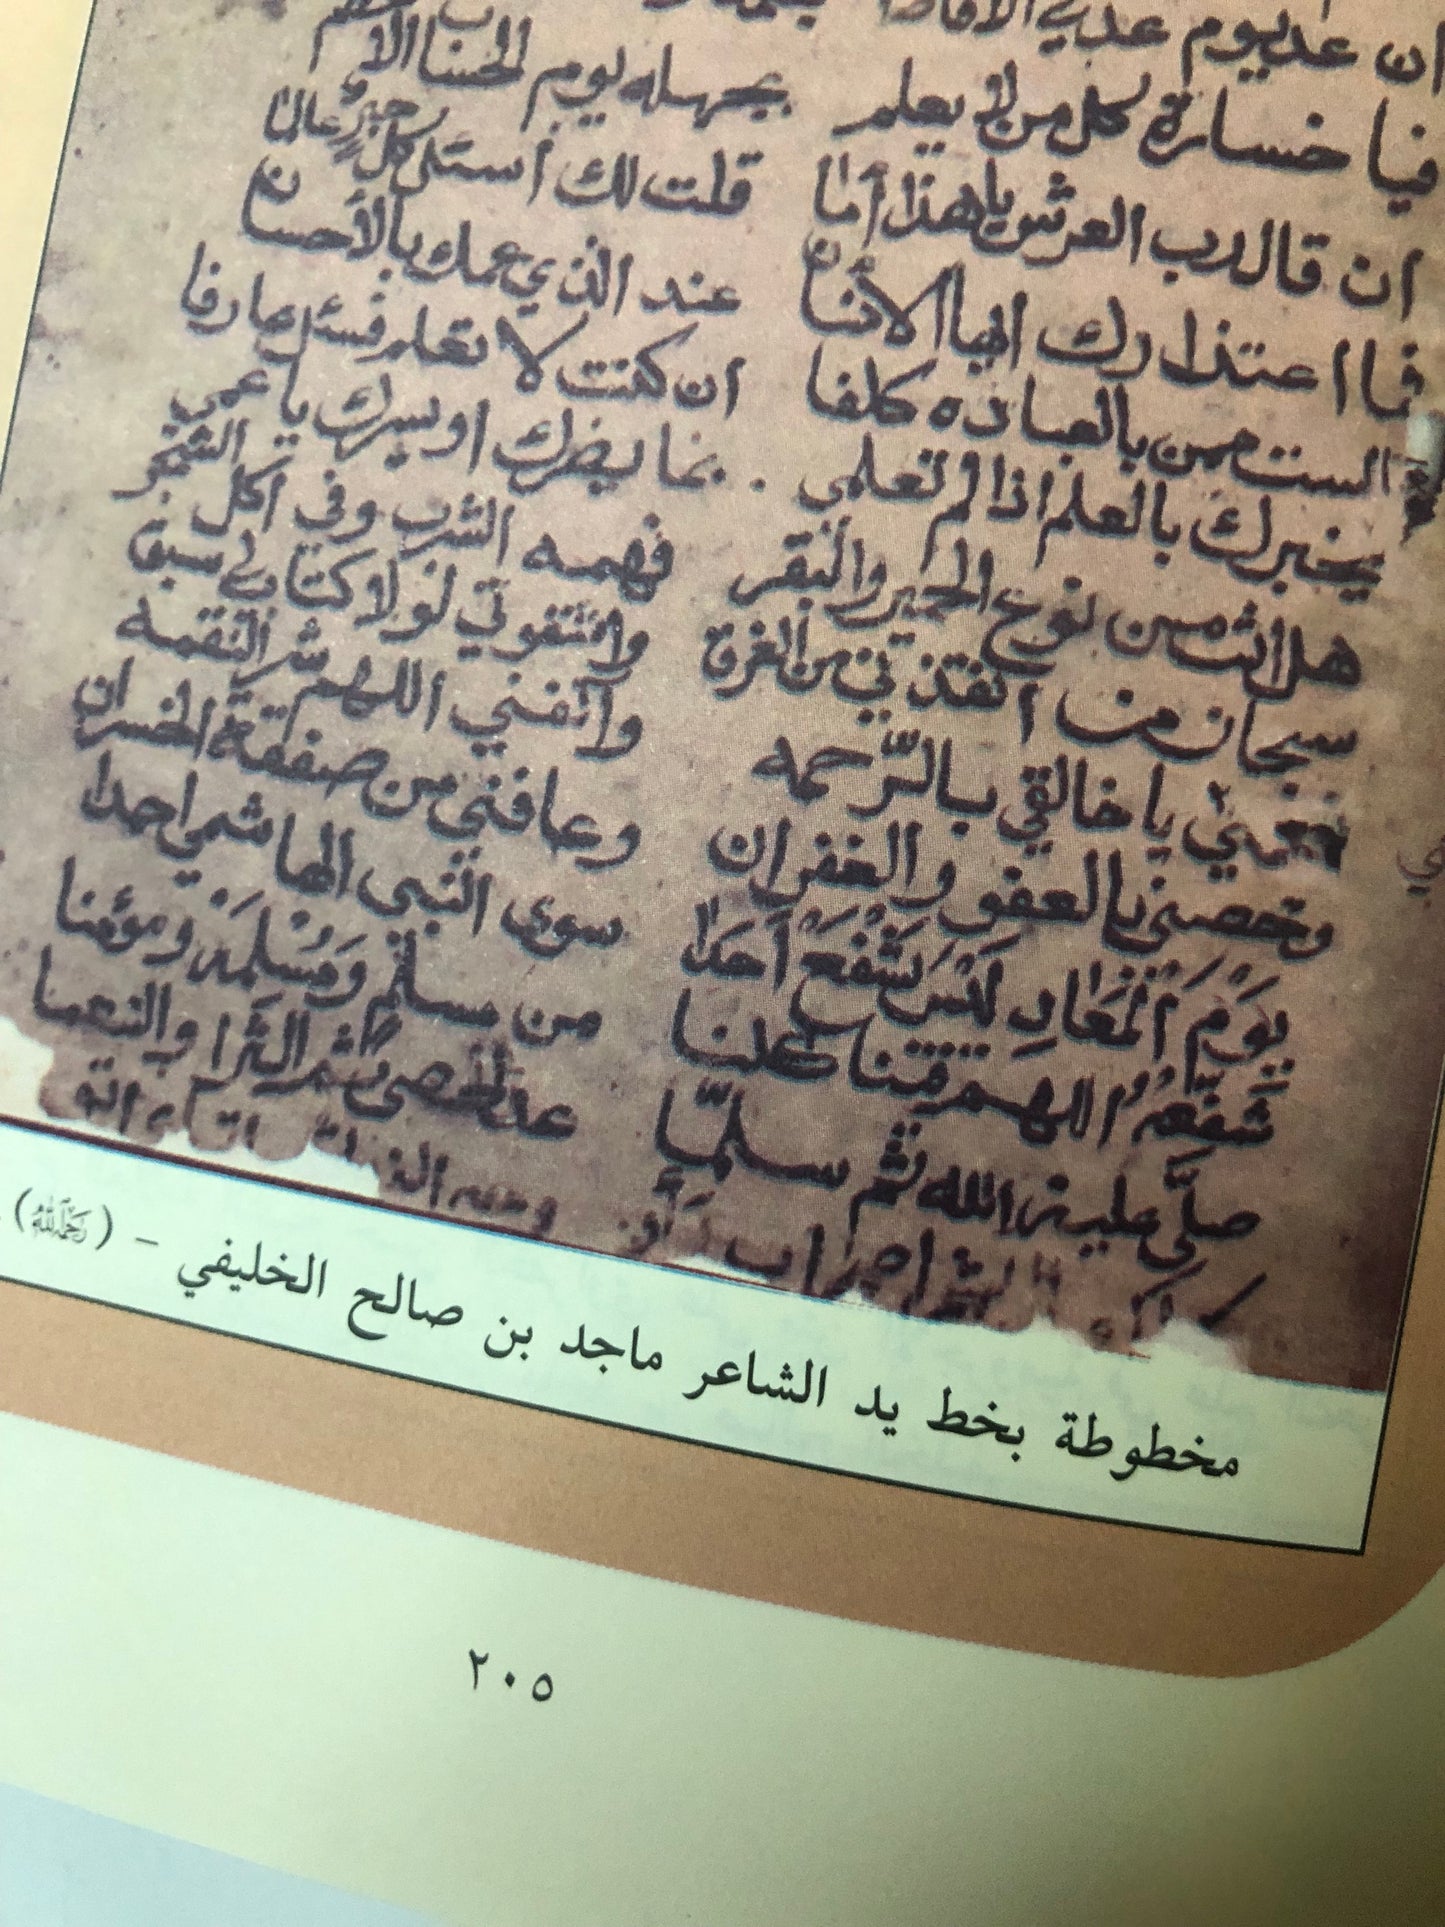 ان عد يوم عدي
فيا خسارة كل من لا يعلم بجهله يوم الحساب الا
ان قال رب العرش يا هذا أما قلت لك أستل كل حبر عالما
فما اعتذارك ايها الانسان عند الذي عمك بالأحسان
الست ممن بالعباده كلفا ان كنت لا تعلم فسئل عارفا
يخبرك بالعلم اذا لم تعلمي بما يضرك او يسرك يا عمي
هل انت من نوع الحمير والبقر فهمه الشرب وفي اكل الشجر
سبحان من انقذني من الغرق وا شقوتي لولا كتابي سبق
يا خالقي بالرّحمه واكفني اللهم شر النقمه
وخصني بالعفو والغفران وعافني من صفقة الخسران
يَوْمَ الْمَعَادِ لَيْسَ يَشْفَعْ أَحَدًا سوى النبي الهاشمي احمدا
شَفِّعْهُ اللهم فينا كلنا من مسلم وَمُسْلِمَه ومؤمنا
صلَّى عليه الله ثم سلّما عد الحصى ثم الثَّرا والنعما
مخطوطة بخط يد الشاعر ماجد بن صالح الخليفي - (رحمه الله)
٢٠٥